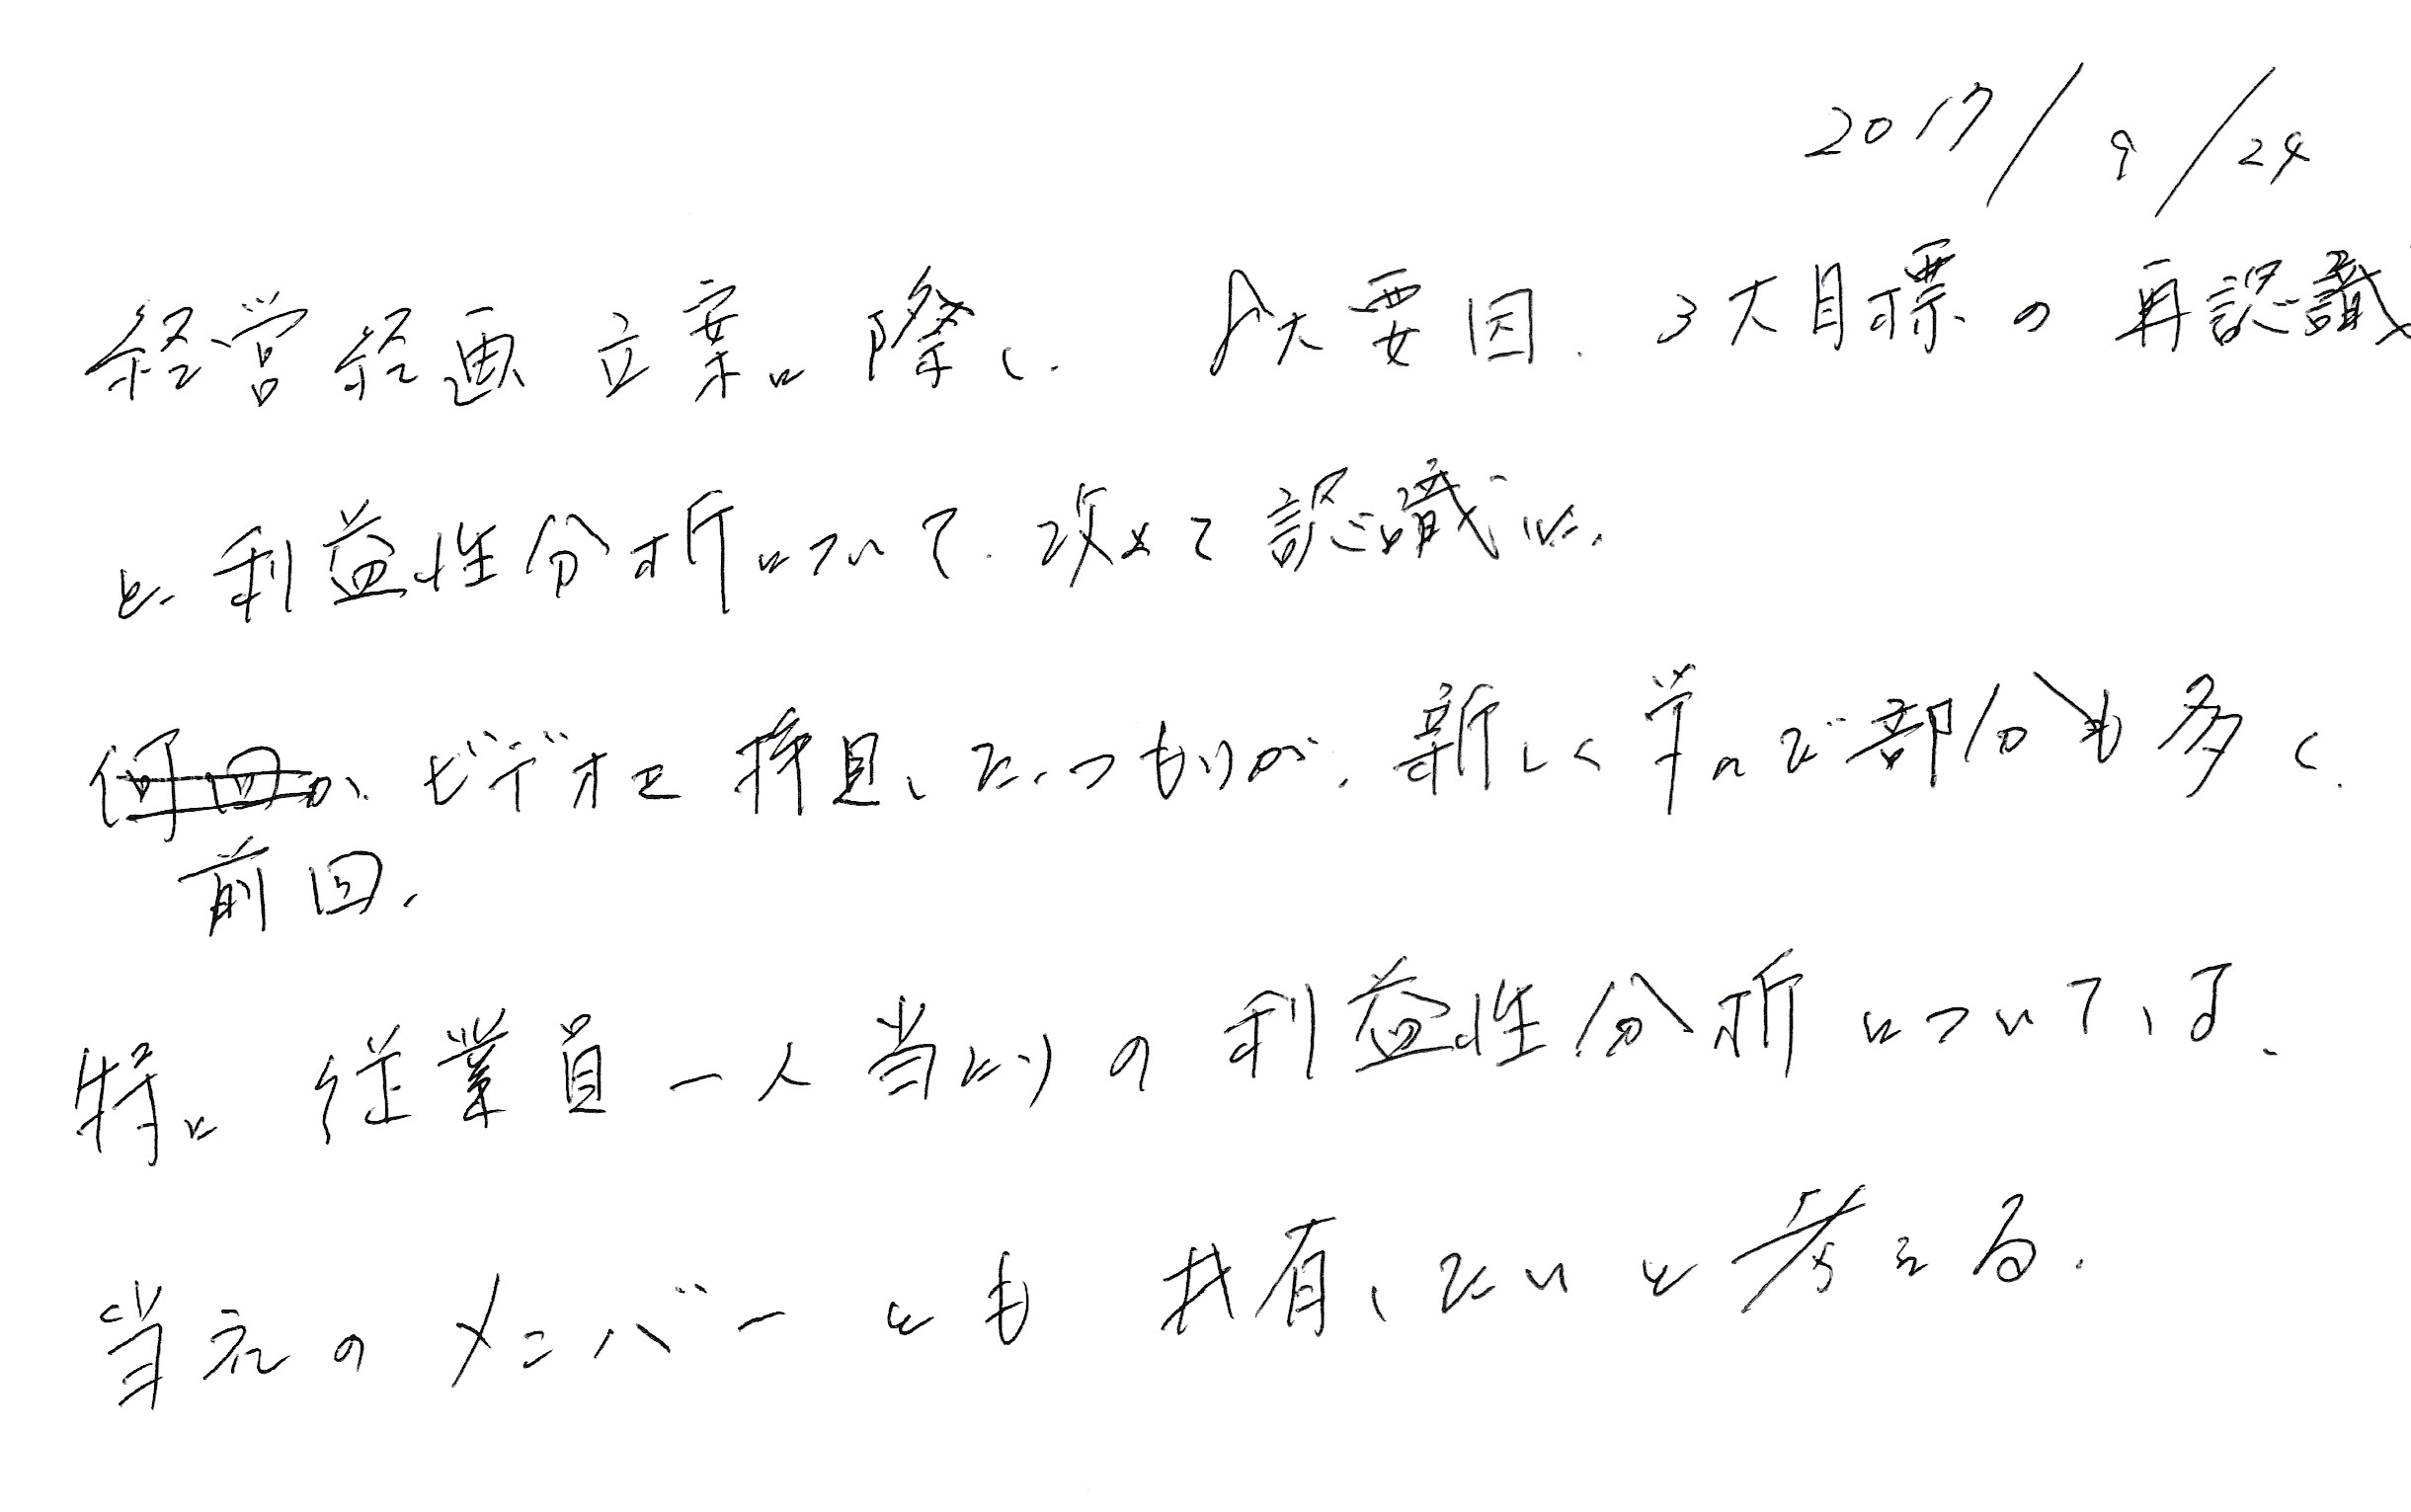 2017/9/24
経営経画立案に際し、8大要因、3大目標の再認識
と、利益性分析について、改めて認識した。
何回か、ビデオで拝見したつもりが、新しく学んで部分も多く、
前回、
特に従業員一人当たりの利益性分析については、
当社のメンバーとも共有したいと考える。